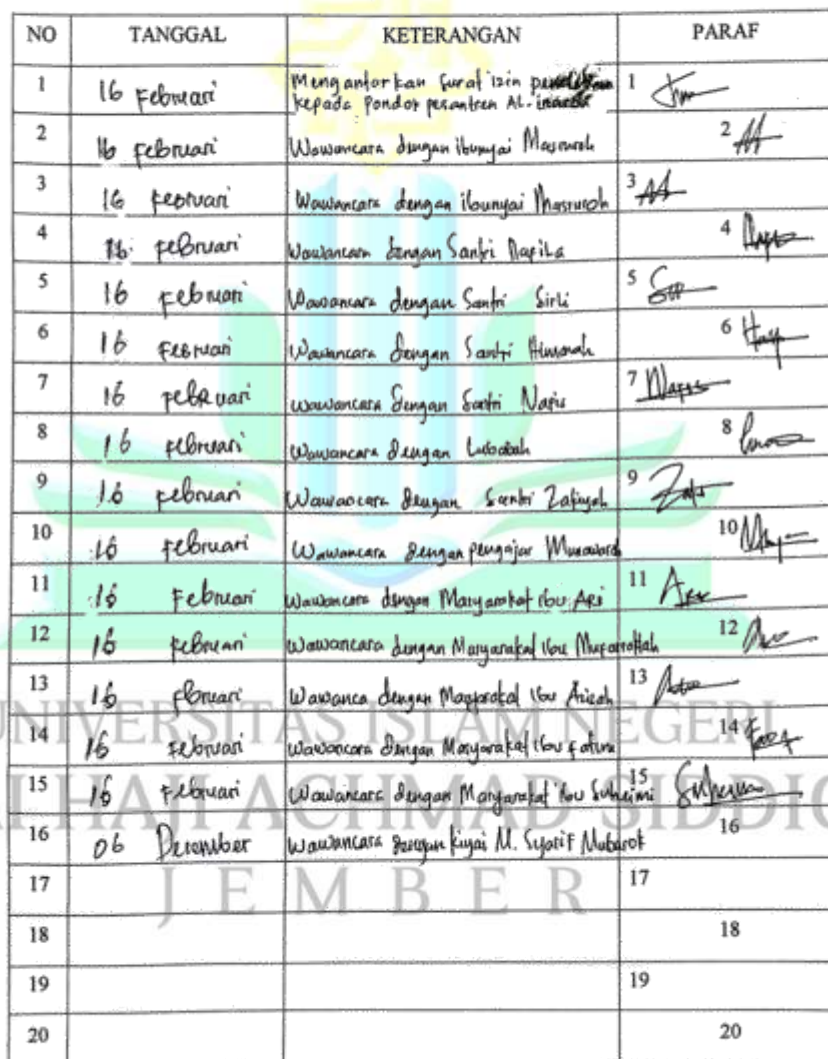 NO TANGGAL KETERANGAN PARAF
1 16 Februari Mengantarkan Surat izin penelitian 1
kepada Pondok pesantren AL-
2 16 Februari Wawancara dengan ibunyai Masruroh 2
3 16 Februari Wawancara dengan ibunyai Masruroh 3
4 16 Februari Wawancara dengan Santri Nafila 4
5 16 Februari Wawancara dengan Santri Sirli 5
6 16 Februari Wawancara dengan Santri 6
7 16 Februari Wawancara dengan Santri Nafis 7
8 16 Februari Wawancara dengan Lubabah 8
9 16 Februari Wawancara dengan Santri Zafiyah 9
10 16 Februari Wawancara dengan pengajar 10
11 16 Februari Wawancara dengan Masyarakat ibu Ari 11
12 16 Februari Wawancara dengan Masyarakat ibu 12
13 16 Februari Wawanca dengan Masyarakat ibu 13
14 16 Februari Wawancara dengan Masyarakat ibu 14
15 16 Februari Wawancara dengan Masyarakat ibu Suheimi 15
16 06 December Wawancara dengan kiyai M. Syarif Mubarok 16
17 17
18 18
19 19
20 20
UNIVERSITAS ISLAM NEGERI
HAJI ACHMAD SIDDIQ
JEMBER